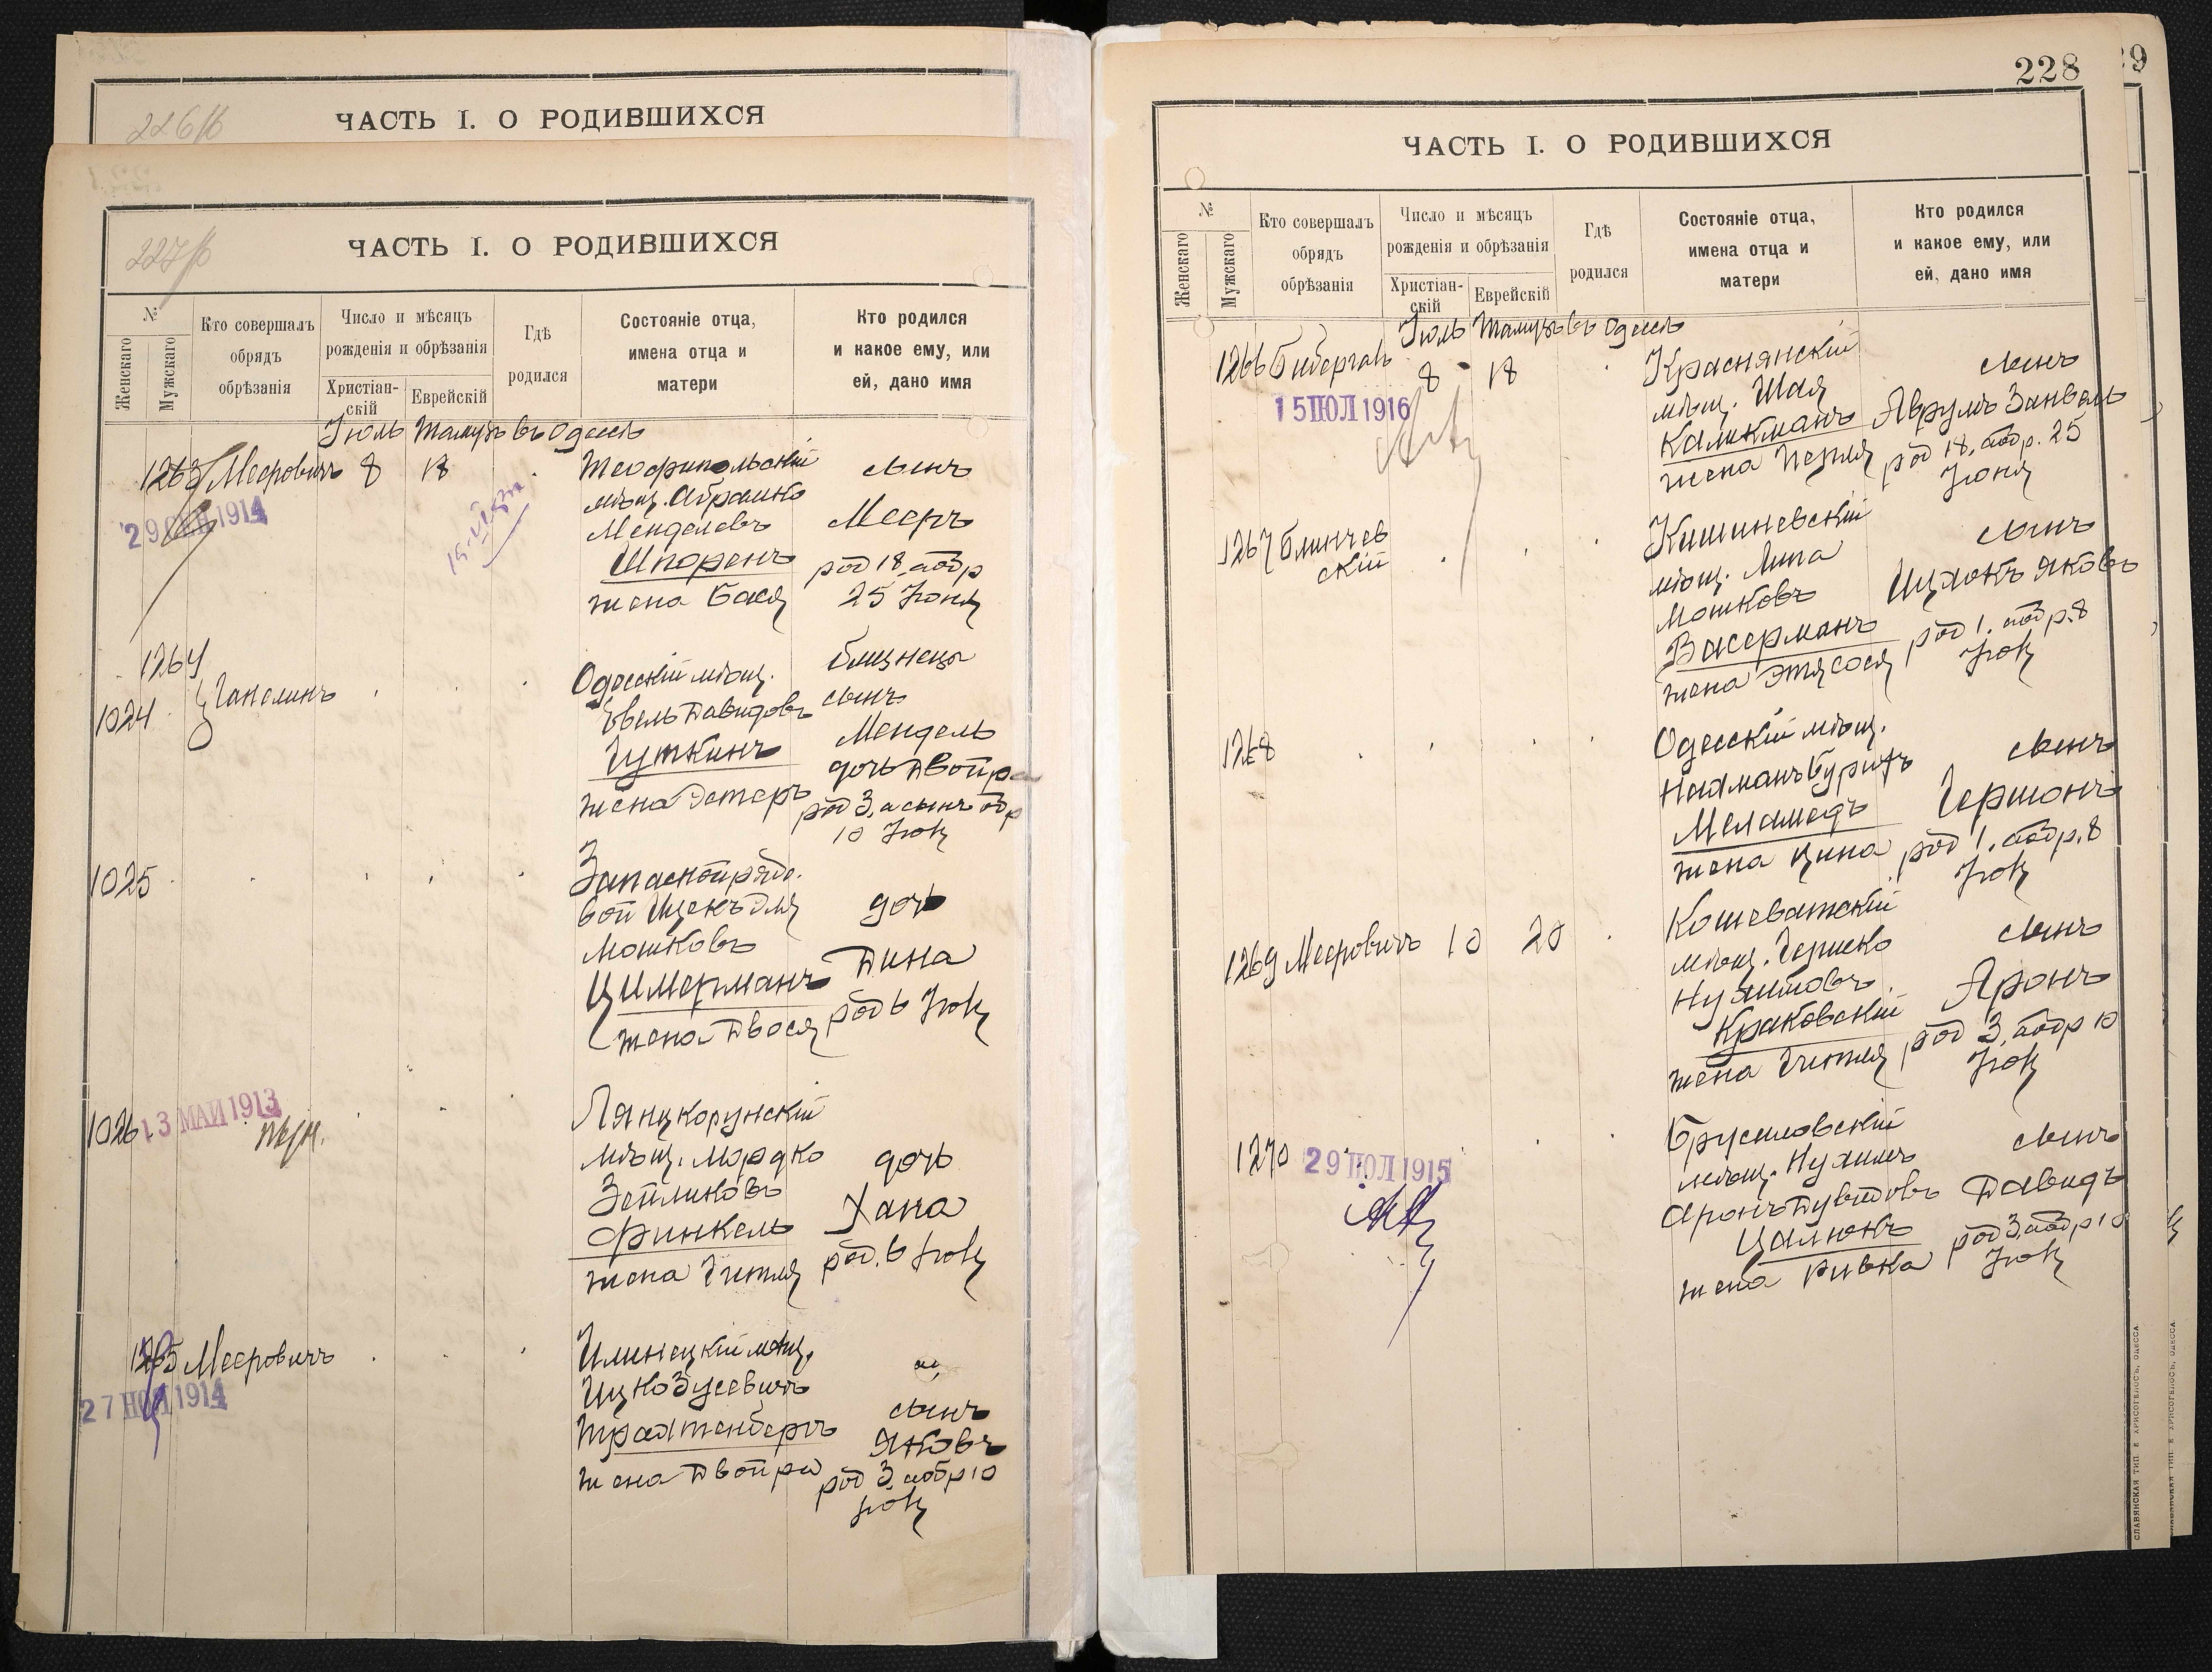 226/б
ЧАСТЬ I. О РОДИВШИХСЯ
227/б
ЧАСТЬ I. О РОДИВШИХСЯ
№
Женскаго
Мужскаго
Кто совершалъ
обрядъ
обрѣзанія
Число и мѣсяцъ
рожденія и обрѣзанія
Христіан-
скій
Еврейскій
Гдѣ
родился
Состояніе отца,
имена отца и
матери
Кто родился
и какое ему, или
ей, дано имя
Іюль Тамузъ въ Одессѣ
1263 Мееровичъ 8 18
29 1914
Теофипольскій
мѣщ. Абрамко
Менделевъ
Шпоренъ
жена Бася
сынъ
Мееръ
род 18, а обр
25 Іюня
1264
1024
Цапелинъ
Одесскій мѣщ.
Евель Давидовъ
Гуткинъ
жена Эстеръ
близнецы
сынъ
Мендель
дочь Двойра
род 3, а сынъ обр
10 Іюл
1025
Запасной рядо-
вой Ицекъ Эля
Мошковъ
Цимерманъ
жена Двося
дочь
Дина
род 6 Іюл
1026
13 МАЙ 1913
Лянцкорунскій
мѣщ. Мордко
Зейликовъ
Финкель
жена Гитля
дочь
Хана
род. 6 Іюл
1265 Мееровичъ
27 НОЯ 1914
Илинецкій мѣщ.
Ицко Зусевичъ
Трахтенбергъ
жена Двойра
сынъ
Яковъ
род 3, а обр 10
Іюл
228
29
ЧАСТЬ I. О РОДИВШИХСЯ
№
Женскаго
Мужскаго
Кто совершалъ
обрядъ
обрѣзанія
Число и мѣсяцъ
рожденія и обрѣзанія
Христіан-
скій
Еврейскій
Гдѣ
родился
Состояніе отца,
имена отца и
матери
Кто родился
и какое ему, или
ей, дано имя
Іюль Тамузъ въ Одессѣ
1266 Бибергаль 8 18
15 ІЮЛ 1916
Краснянскій
мѣщ. Шая
Каликманъ
жена Пегля
сынъ
Аврумъ Занвель
род 18, а обр. 25
Іюня
1267 Блинчев
скій
Кишиневскій
мѣщ. Липа
Мошковъ
Васерманъ
жена Этя Сося
сынъ
Ицхокъ Яковъ
род 1. а обр. 8
Іюл
1268
Одесскій мѣщ.
Нахманъ Бурихъ
Меламедъ
жена Ципа
сынъ
Гершонъ
род 1, а обр. 8
Іюл
1269 Мееровичъ 10 20
Кошеватскій
мѣщ. Гершко
Нухимовъ
Краковскій
жена Гитля
сынъ
Аронъ
род 3, а обр 10
Іюл
1270
29 ІЮЛ 1915
Брусиловскій
мѣщ. Нухимъ
Аронъ Дувидовъ
Цалюкъ
жена Ривка
сынъ
Давидъ
род 3, а обр 10
Іюл
СЛАВЯНСКАЯ ТИП. Е. ХРИСОГЕЛОСЪ, ОДЕССА